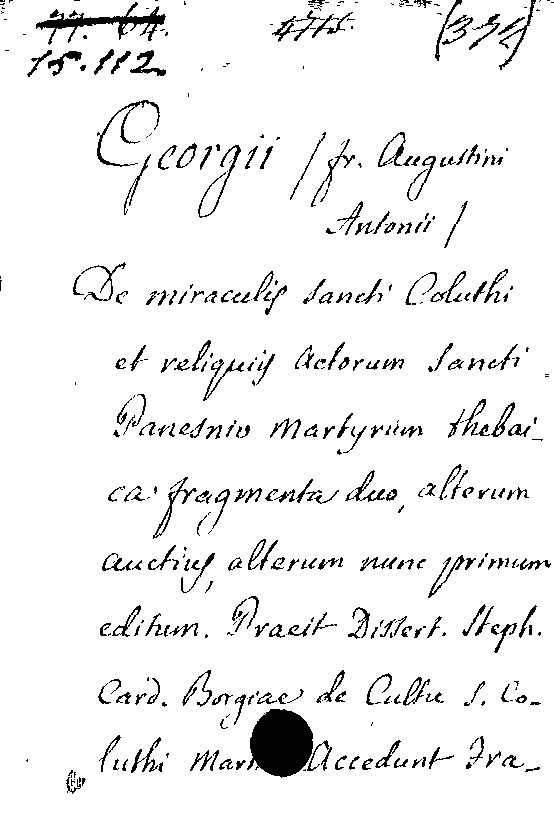 77. 64. 4715. (374)
15.112.
Georgii / fr. Augustini
Antonii /
De miraculis sancti Coluthi
et reliquiis actorum sancti
Panesniv martyrum thebai_
ca fragmenta duo, alterum
auctius, alterum nunc primum
editum. Praeit Dissert. Steph.
Card. Borgiae de Cultu S. Co_
luthi Mart Accedunt Fra_